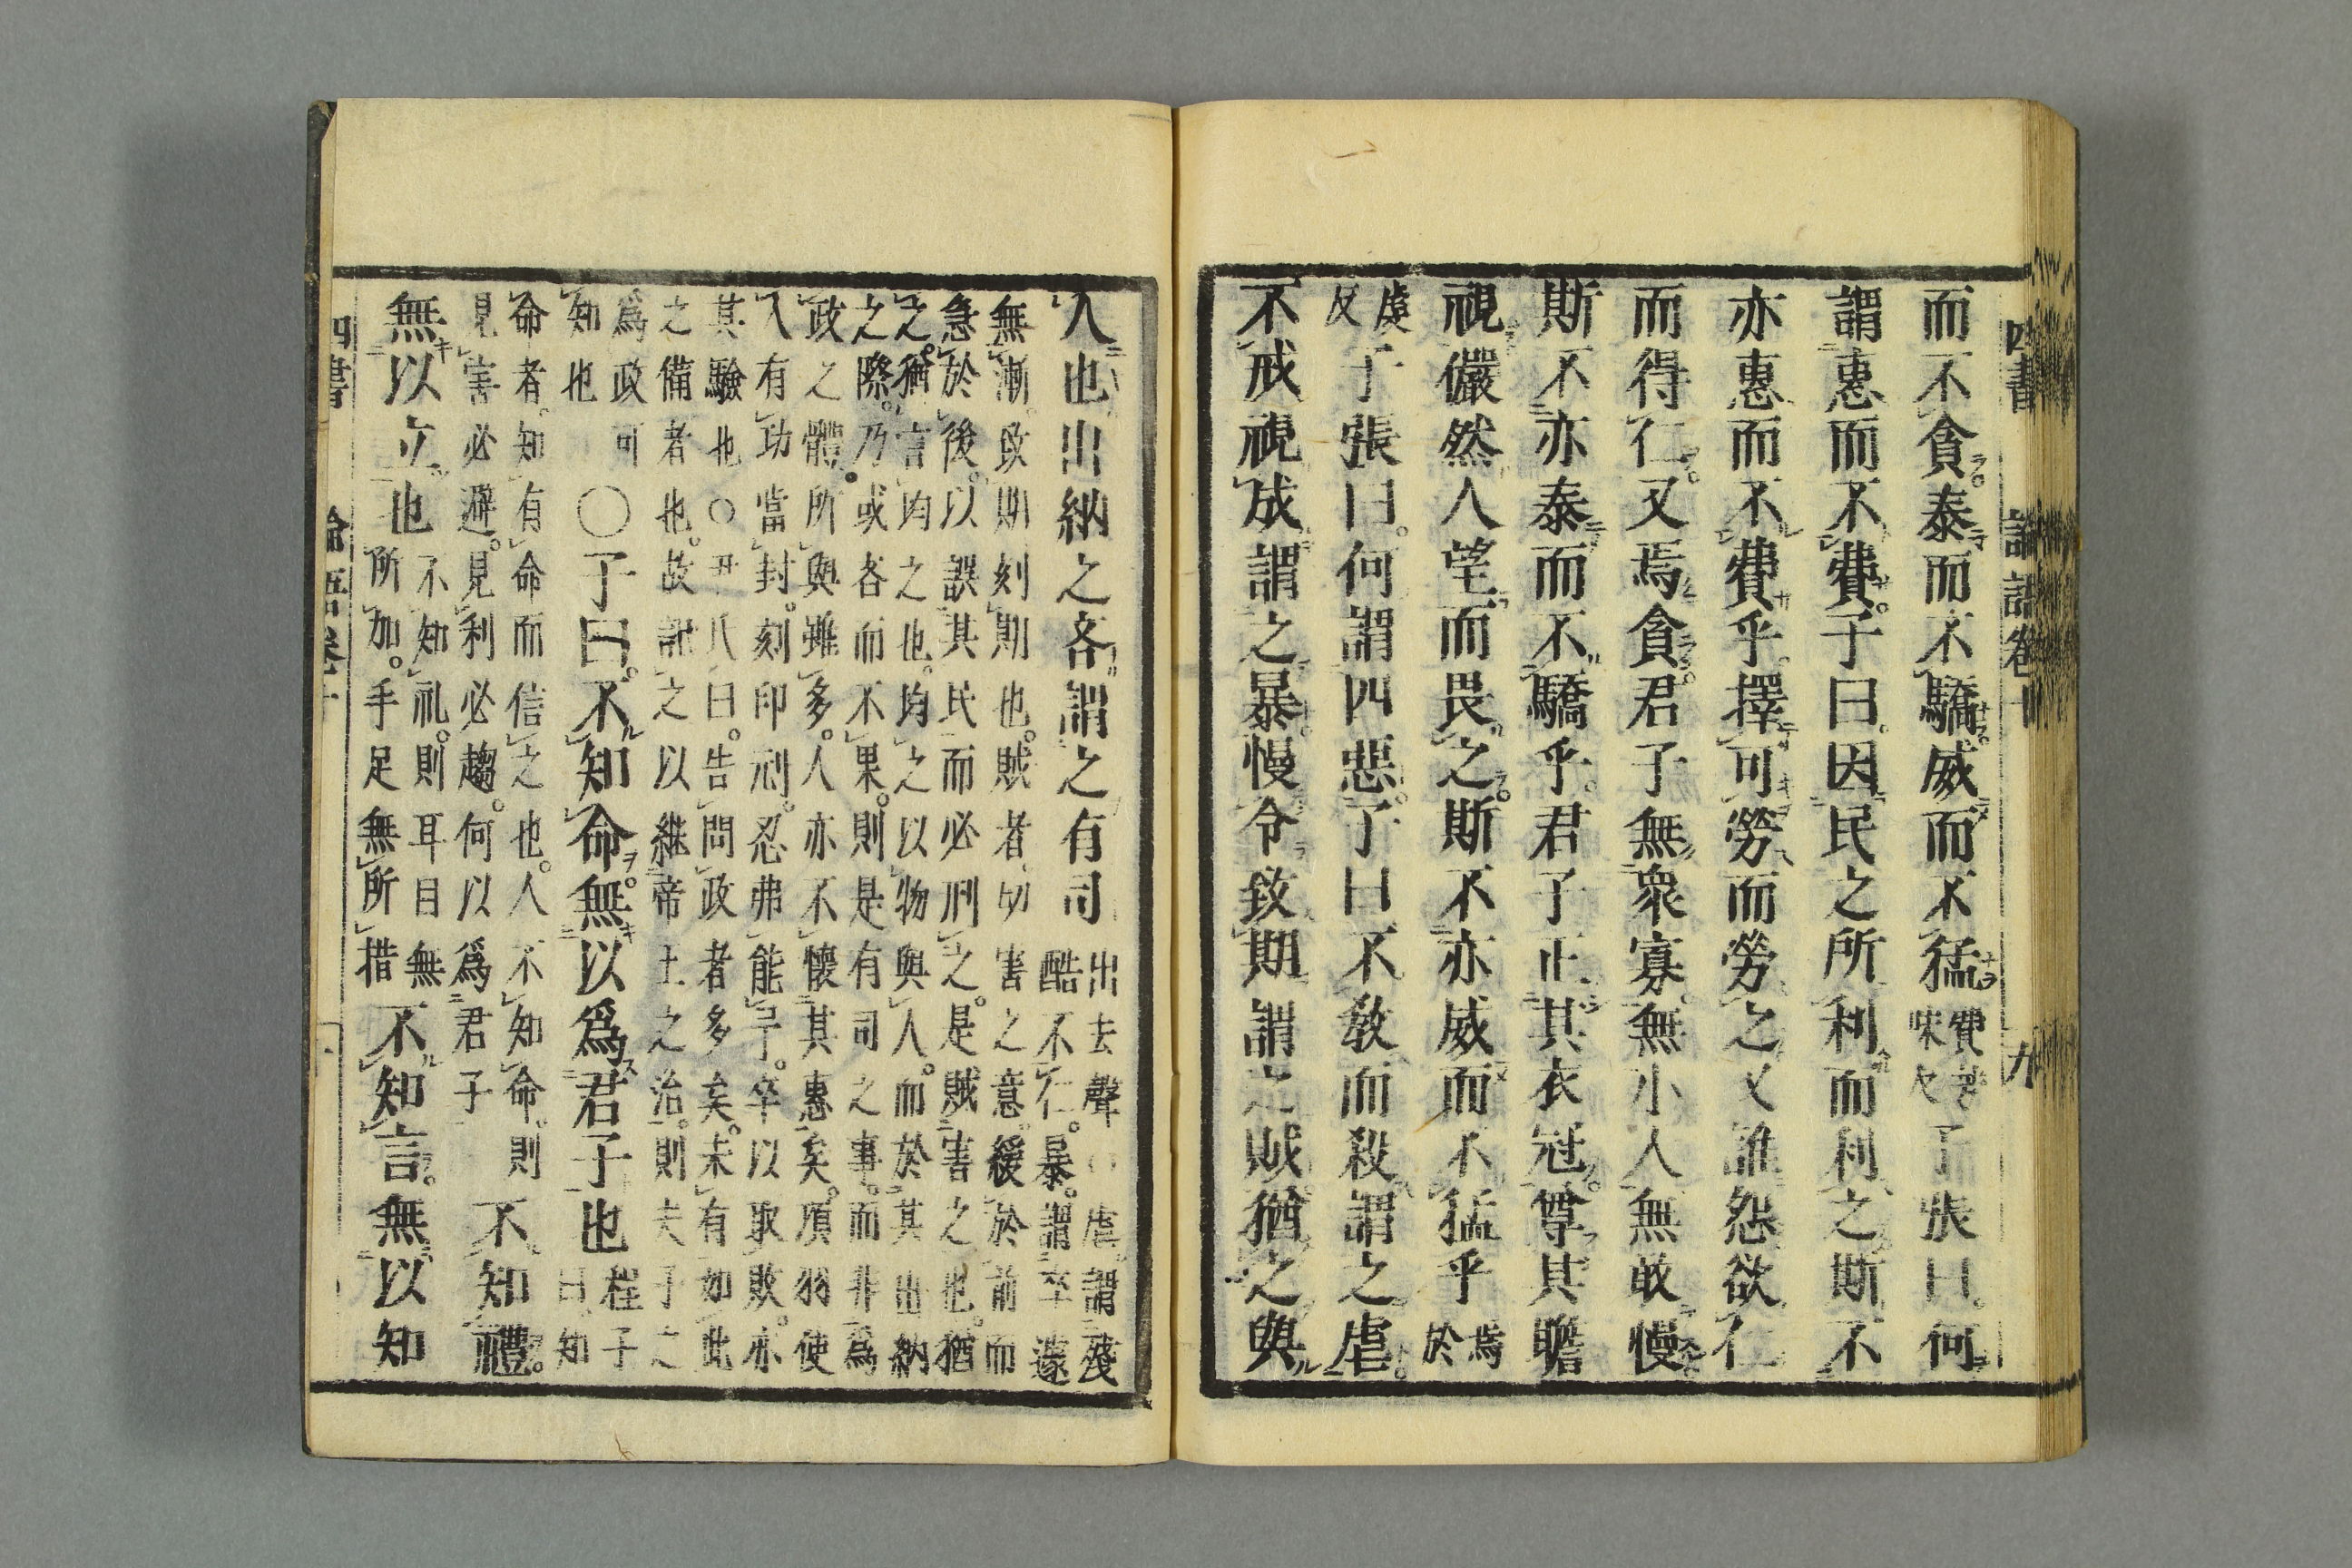 四書 論語卷十 九
而不貪泰而不驕威而不猛費芳味反子張曰何
謂惠而不費子曰因民之所利而利之斯不
亦惠而不費乎擇可勞而勞之又誰怨欲仁
而得仁又焉貪君子無衆寡無小人無敢慢
斯不亦泰而不驕乎君子正其衣冠尊其瞻
視儼然人望而畏之斯不亦威而不猛乎焉於
虔反子張曰何謂四惡子曰不敎而殺謂之虐
不戒視成謂之暴慢令致期謂之賊猶之與
人也出納之吝謂之有司
出去聲○虐謂殘
酷不仁暴謂卒遽
無漸致期刻期也賊者切害之意緩於前而
急於後以誤其民而必刑之是賊害之也猶
之猶言均之也均之以物與人而於其出納
之際乃或吝而不果則是有司之事而非爲
政之體所與雖多人亦不懷其惠矣項羽使
人有功當封刻印刓忍弗能予卒以取敗亦
其驗也○尹氏曰告問政者多矣未有如此
之備者也故記之以繼帝王之治則夫子之
爲政可
知也
○子曰不知命無以爲君子也
程子
曰知
命者知有命而信之也人不知命則
見害必避見利必趨何以爲君子
不知禮
無以立也
不知礼則耳目無
所加手足無所措
不知言無以知
四書 論語卷十